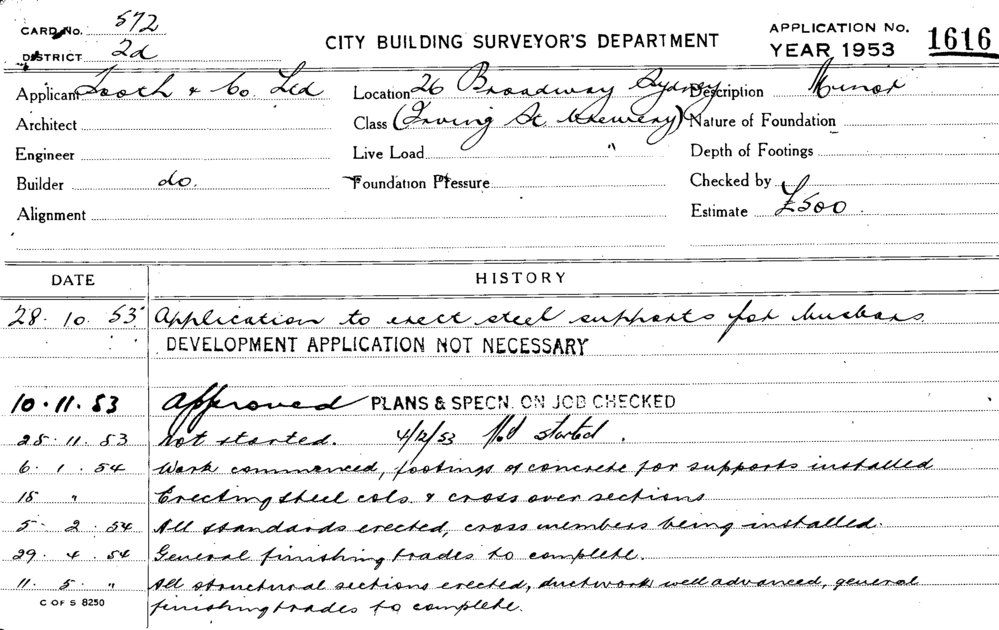 CARD No. 572
DISTRICT 2d
CITY BUILDING SURVEYOR'S DEPARTMENT
APPLICATION No. 1616
YEAR 1953
Applicant Tooth & Co. Ltd Location 26 Broadway Sydney Description Minor
Architect Class (Irving St. Brewery) Nature of Foundation
Engineer Live Load " Depth of Footings
Builder do. Foundation Pressure Checked by
Alignment Estimate £500
DATE HISTORY
28. 10. 53 Application to erect steel supports for busbars
DEVELOPMENT APPLICATION NOT NECESSARY
10.11.53 Approved PLANS & SPECN. ON JOB CHECKED
25. 11. 53 Not started. 4/12/53 Not started.
6. 1. 54 Work commenced, footings of concrete for supports installed
15 " Erecting steel cols. & cross over sections
5. 2. 54 All standards erected, cross members being installed.
29. 4. 54 General finishing trades to complete.
11. 5. " All structural sections erected, ductwork well advanced, general
C OF S 8250 finishing trades to complete.